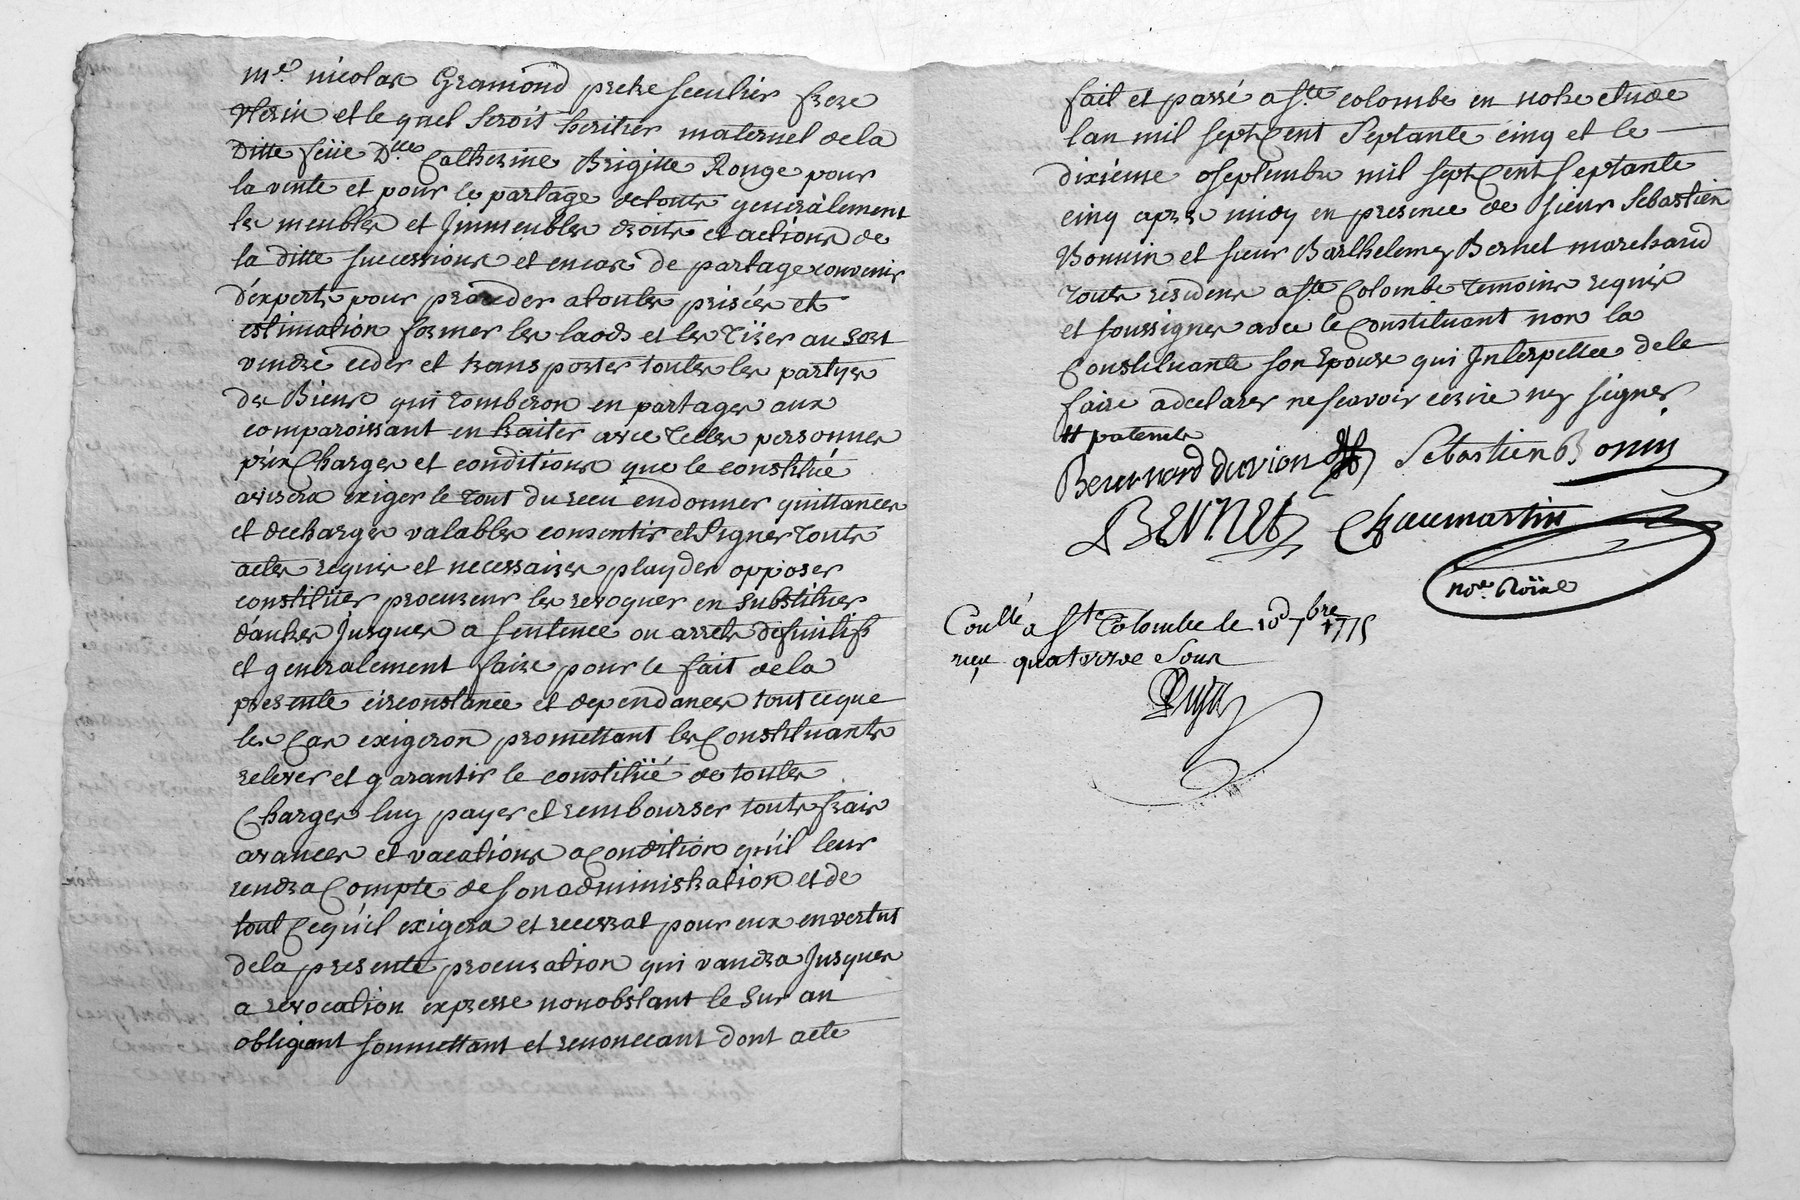 Me. nicolas Gramond pretre seculier frere
uterin et le quel Serois heritier maternel de la
Ditte feüe Dlle Catherine Brigitte Rouge pour
la vente et pour le partage de touts generàlement
les meubles et Jmmeubles droits et actions de
la ditte successions et en cas de partage convenir
d'experts pour proceder a toutes prisées et
estimation former les laods et les Tirer au sort
vendre ceder et transporter toutes les partyes
des Biens qui tomberon en partages aux
comparoissant en traiter avec Telles personnes
prix Charges et conditions que le constitué
avisera exiger le tout du recu en donner quittances
et decharges valables consentir et Signer Touts
actes requis et necessaires playder opposer
constitüer procureur les revoquer en substituer
d'autres Jusques a sentence ou arrets definitifs
et generalement faire pour le fait de la
presente circonstance et dependances tout ceque
les Cas exigeron promettant les Constituants
relever et garantir le constitüé de toutes
Charges luy payer et rembourser touts frais
avances et vacations a Condition qu'il leur
rendra Compte de son administration et de
tout Cequ'il exigera et recevrat pour eux en vertus
de la presente procuration qui vaudra Jusques
a revocation expresse nonobstant le sur an
obligeant soumettant et renoncant dont acte
fait et passé a Ste colombe en notre etude
lan mil sept Cent Septante cinq et le
dixiéme septembre mil sept Cent septante
cinq apres midy en presence de sieur Sebastien
Bonnin et sieur Barthelemy Bernet marchand
touts residens a Ste Colombe temoins requis
et soussignes avec le Constituant non la
Constituante son Epouse qui Interpellée de le
faire a declarer ne scavoir ecrire ny signer
# patentes
Beurnard duvion Sebastien Bonin
BERNET Chaumartin
nore. Roïal
Conllé a Ste Colombe le 10d 7bre 1775
reçu quatorze Sous